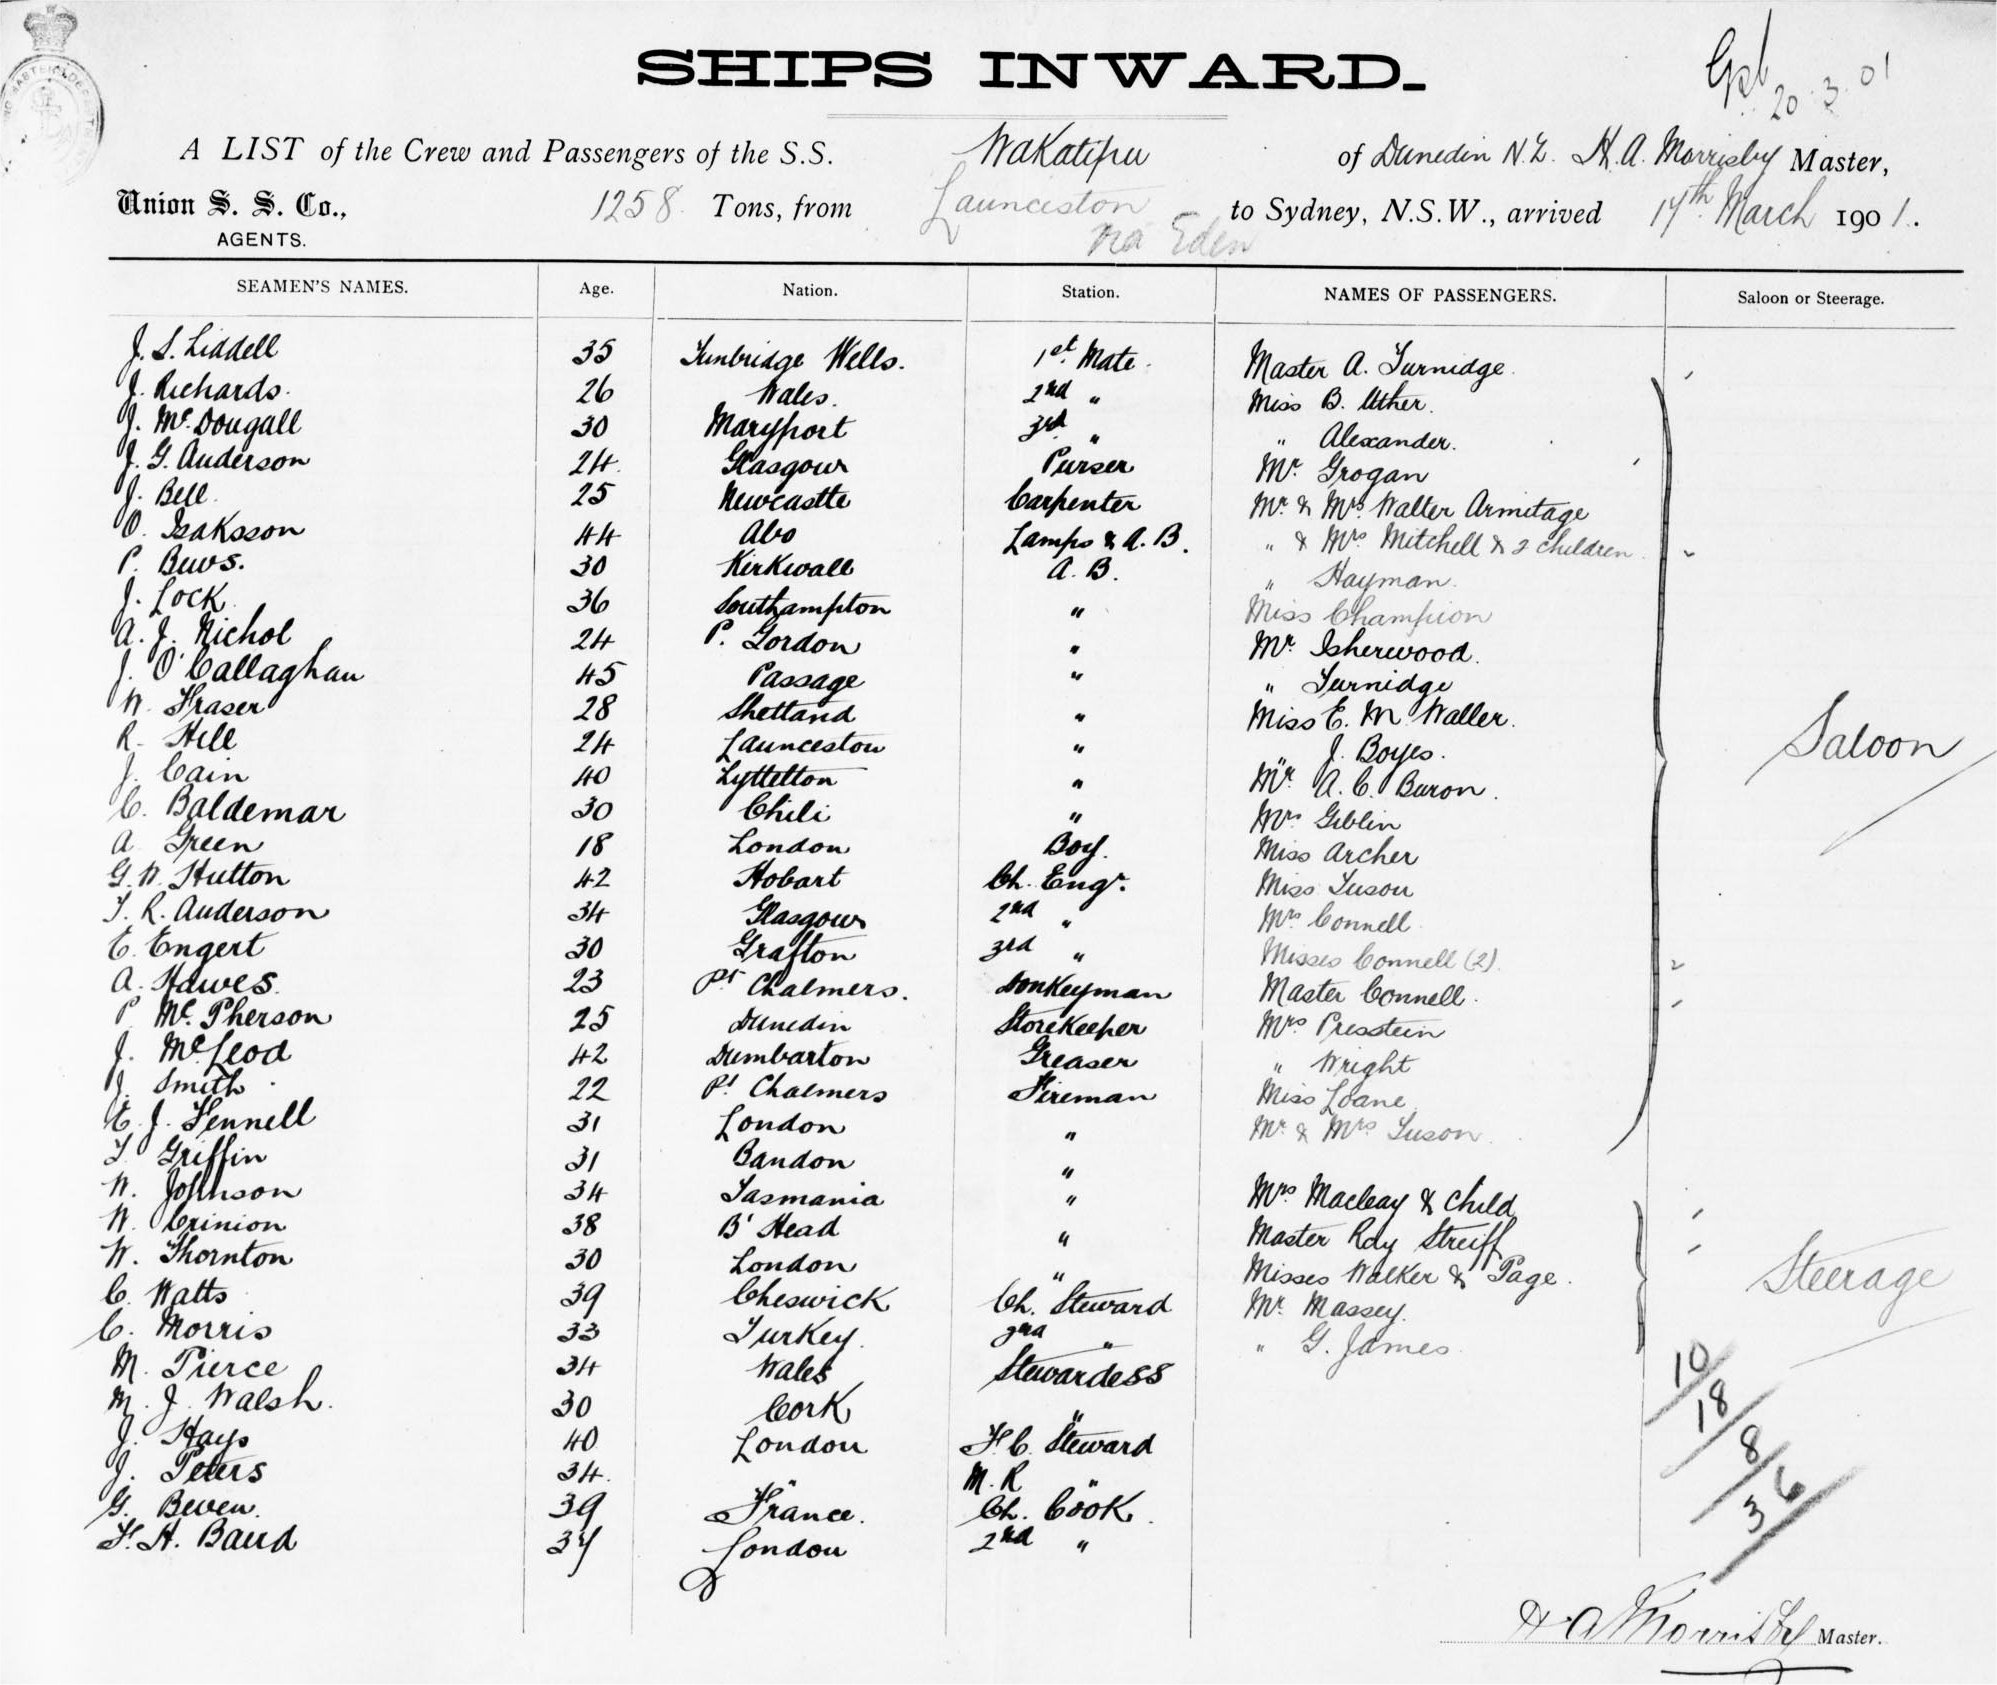 SHIPS INWARD.
20.3.01
A LIST of the Crew and Passengers of the S.S. Wakatipu of Dunedin N.Z. H. A. Morrisby Master,
Union S. S. Co., 1258 Tons, from Launceston to Sydney, N.S.W., arrived 17th March 1901.
AGENTS. via Eden
SEAMEN'S NAMES. Age. Nation. Station. NAMES OF PASSENGERS. Saloon or Steerage.
J. S. Liddell 35 Tunbridge Wells. 1st. Mate. Master A. Turnidge.
J. Richards. 26 Wales. 2nd " Miss B. Uther.
J. McDougall 30 Maryport 3rd " " Alexander.
J. G. Anderson 24. Glasgow Purser Mr. Grogan
J. Bell 25 Newcastle Carpenter Mr. & Mrs. Walter Armitage
O. Isaksson 44 Abo Lamps & A. B. " & Mrs Mitchell & 2 children.
P. Bews. 30 Kirkwall A. B. " Hayman.
J. Lock 36 Southampton " Miss Champion
A. J. Nichol 24 P. Gordon " Mr. Isherwood.
J. O'Callaghan 45 Passage " " Turnidge
W. Fraser 28 Shetland " Miss E. M. Waller.
R. Hill 24 Launceston " " J. Boyes. Saloon
J. Cain 40 Lyttelton " Mr A. C. Buron.
C. Baldemar 30 Chili " Mrs Giblin
A Green 18 London Boy. Miss Archer
G. W. Hutton 42 Hobart Ch. Engr. Miss Tuson
T. R. Anderson 34 Glasgow 2nd " Mrs Connell
E. Engert 30 Grafton 3rd " Misses Connell (2).
A. Hawes. 23 Pt Chalmers. Donkeyman Master Connell.
P Mc. Pherson 25 Dunedin Storekeeper Mrs Presstein
J. McLeod 42 Dumbarton Greaser " Wright
J. Smith 22 Pt Chalmers Fireman Miss Loane.
E. J. Fennell 31 London " Mr. & Mrs Tuson.
T. Griffin 31 Bandon "
W. Johnson 34 Tasmania " Mrs Macleay & Child
W. Crinion 38 B' Head " Master Roy Streiff
W. Thornton 30 London " Misses Walker & Page. Steerage
C. Watts 39 Cheswick Ch. Steward Mr. Massey.
C. Morris 33 Turkey. 2nd " " G. James
M. Pierce 34 Wales Stewardess 10
M. J. Walsh. 30 Cork " 18
J. Hays 40 London F. C. Steward 8
J. Peters 34. " M. R " 36
G. Beven. 39 France. Ch. Cook.
F. H. Baud 37 London 2nd "
H A Morrisby Master.